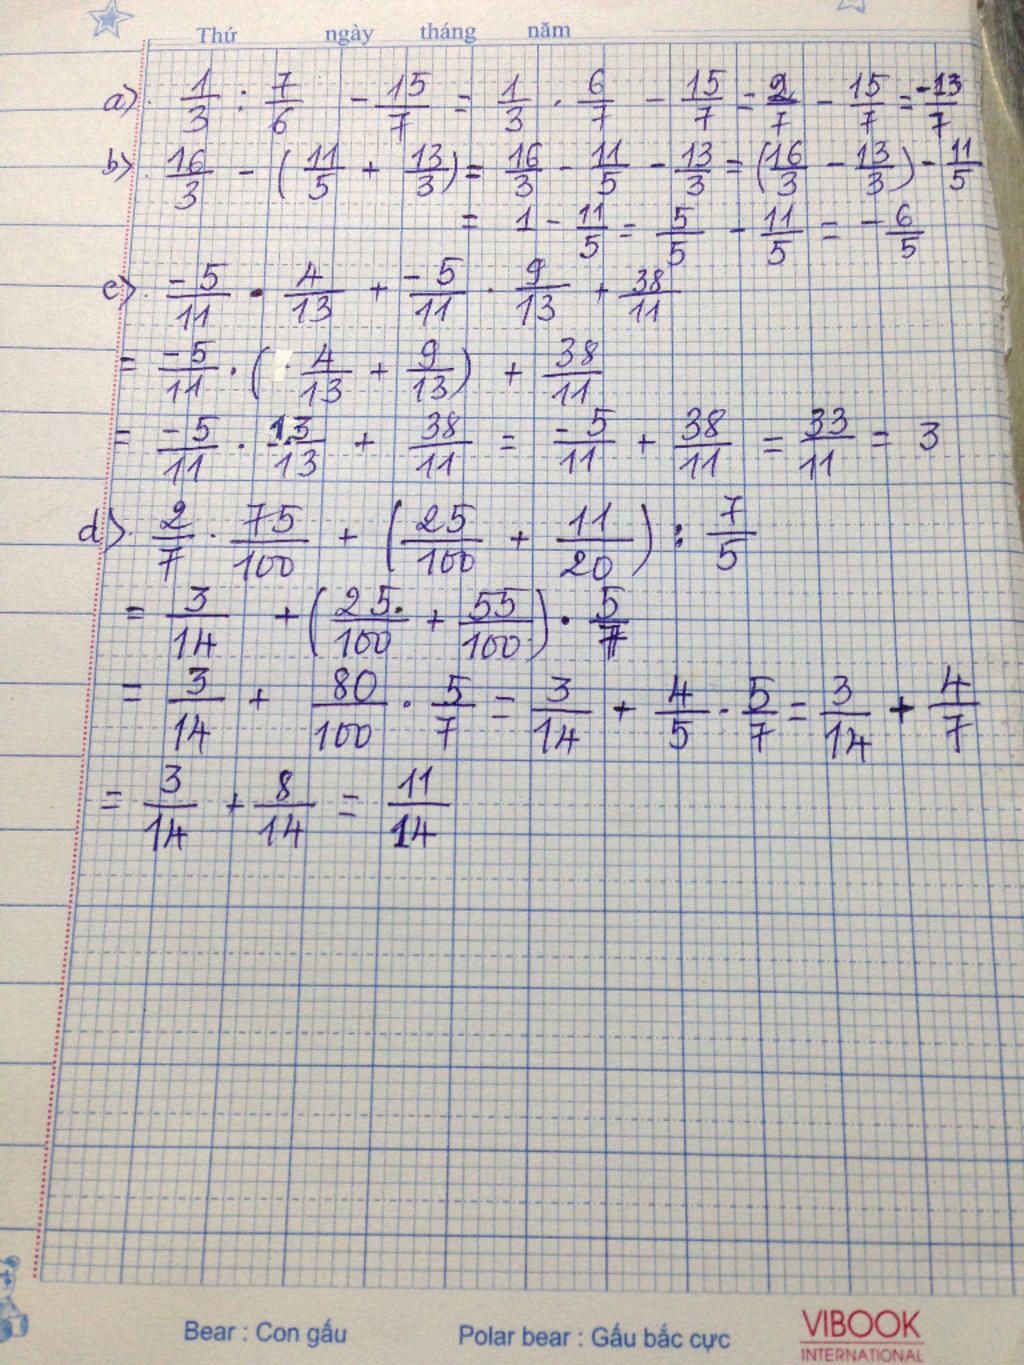 Thứ ngày tháng năm
a) 1/3 : 7/6 - 15/7 = 1/3 . 6/7 - 15/7 = 2/7 - 15/7 = -13/7
b) 16/3 - (11/5 + 13/3) = 16/3 - 11/5 - 13/3 = (16/3 - 13/3) - 11/5
= 1 - 11/5 = 5/5 - 11/5 = -6/5
c) -5/11 . 4/13 + -5/11 . 9/13 + 38/11
= -5/11 . (4/13 + 9/13) + 38/11
= -5/11 . 13/13 + 38/11 = -5/11 + 38/11 = 33/11 = 3
d) 2/7 . 75/100 + (25/100 + 11/20) : 7/5
= 3/14 + (25/100 + 55/100) . 5/7
= 3/14 + 80/100 . 5/7 = 3/14 + 4/5 . 5/7 = 3/14 + 4/7
= 3/14 + 8/14 = 11/14
Bear : Con gấu Polar bear : Gấu bắc cực VIBOOK
INTERNATIONAL